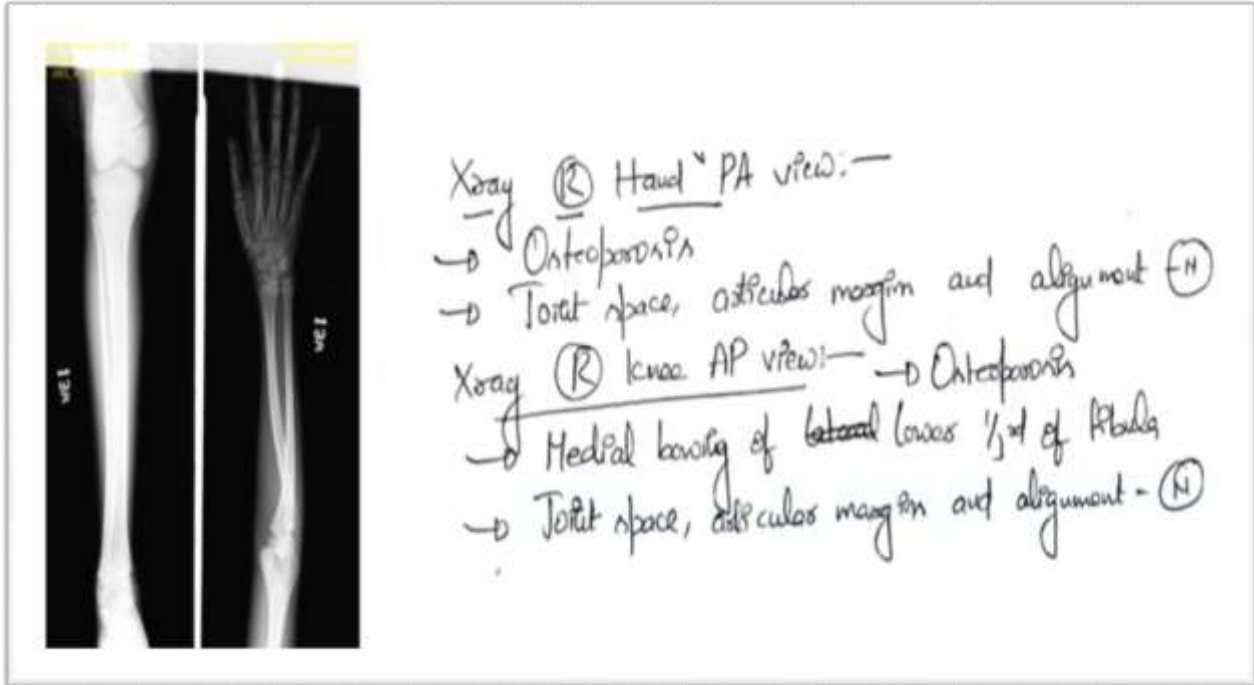 Xray Ⓡ Hand PA view:—
→ Osteoporosis
→ Joint space, articular margin and alignment - Ⓝ
Xray Ⓡ knee AP view:— → Osteoporosis
→ Medial bowing of lateral lower 1/3rd of fibula
→ Joint space, articular margin and alignment - Ⓝ